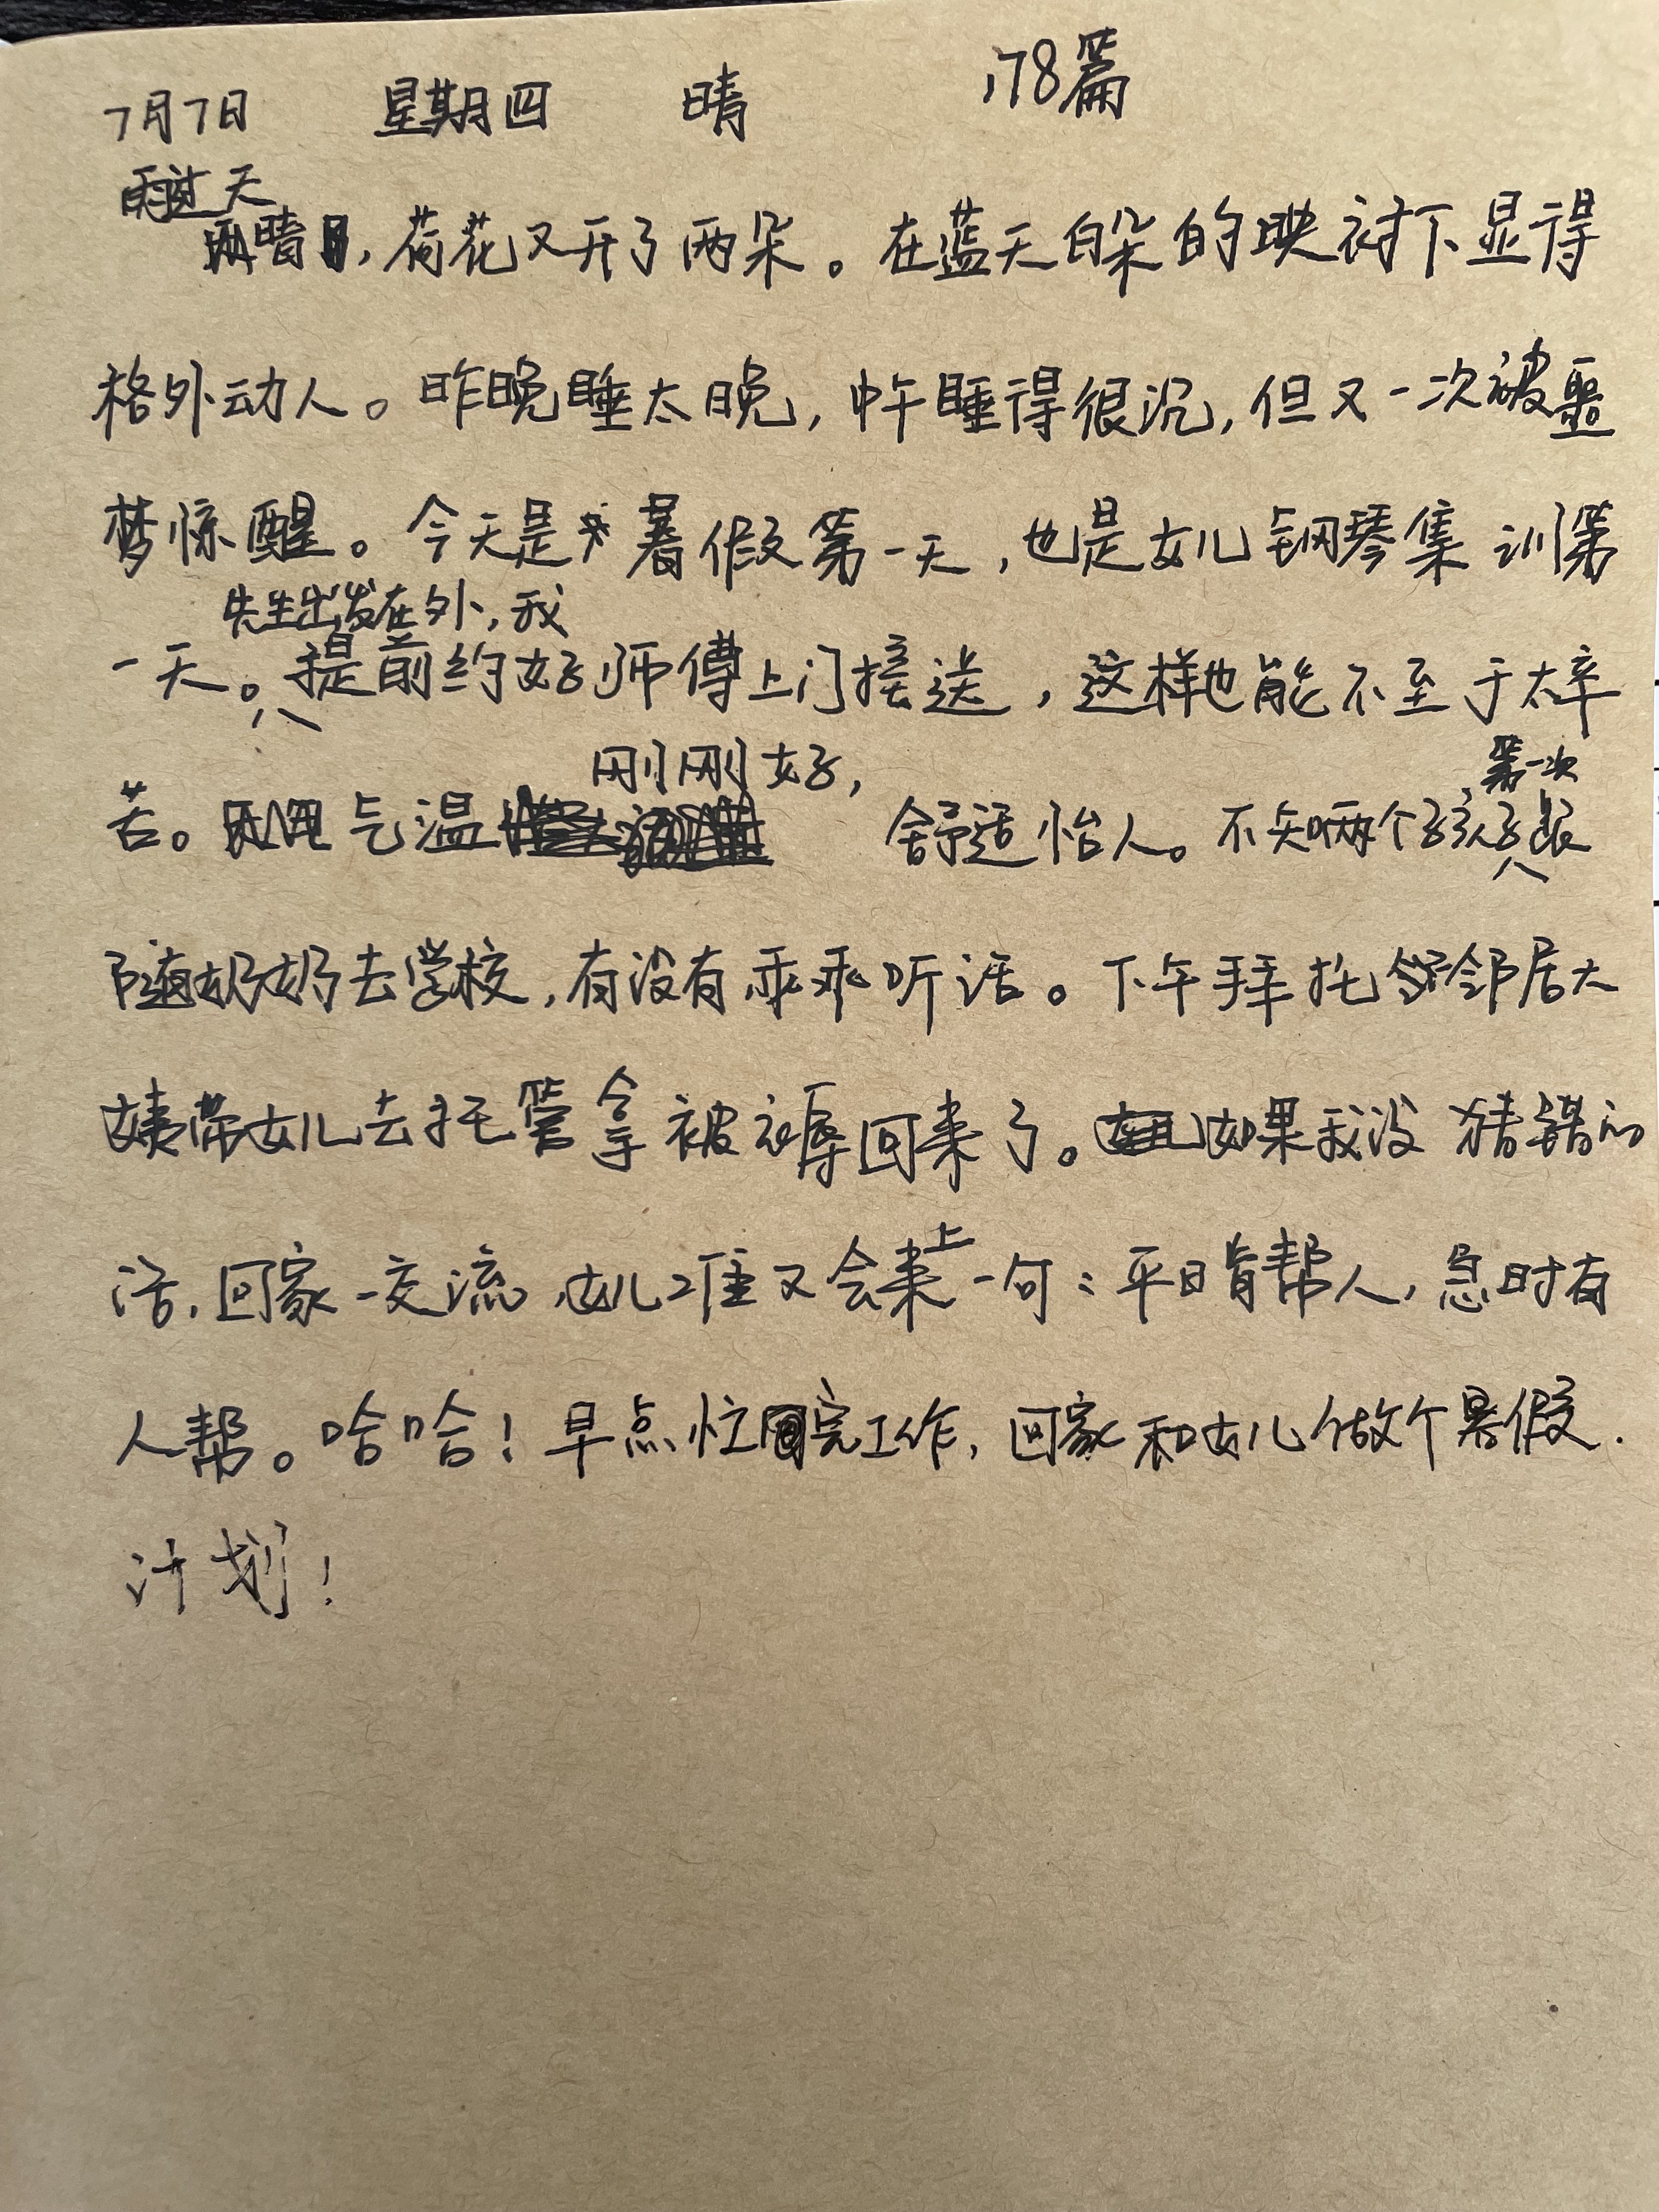 7月7日 星期四 晴 178篇
雨过天
晴,荷花又开了两朵。在蓝天白朵的映衬下显得
格外动人。昨晚睡太晚,中午睡得很沉,但又一次被噩
梦惊醒。今天是暑假第一天,也是女儿钢琴集训第
先生出发在外,我
一天。提前约好师傅上门接送,这样也能不至于太辛
刚刚好, 第一次
苦。气温 舒适怡人。不知两个孩子跟
随奶奶去学校,有没有乖乖听话。下午拜托邻居大
姨带女儿去托管拿被褥回来了。如果我没猜错的
话,回家一交流,女儿准又会来上一句:平日肯帮人,急时有
人帮。哈哈!早点忙完工作,回家和女儿做个暑假.
计划!